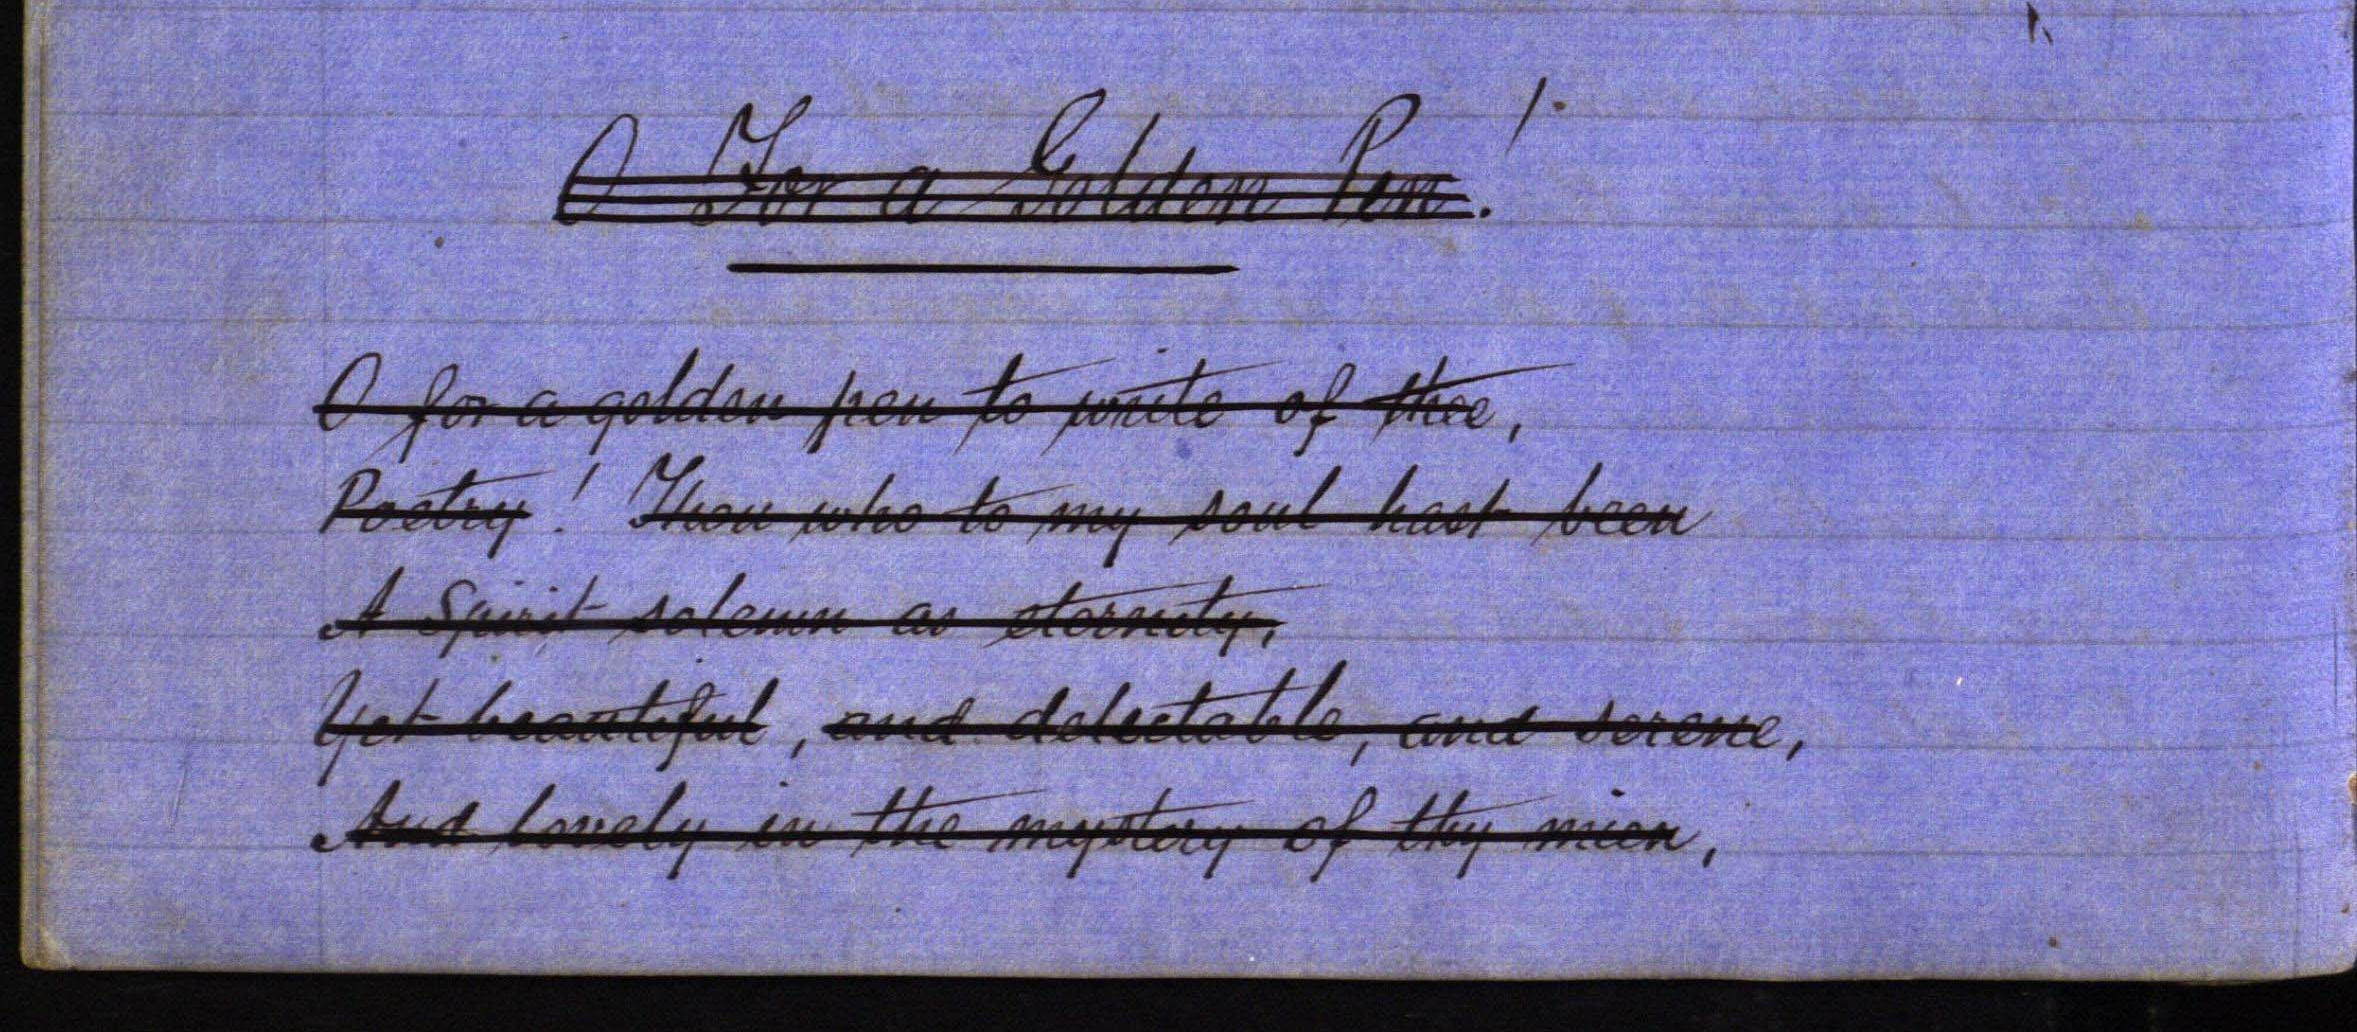 O For a Golden Pen!
O for a golden pen to write of thee,
Poetry! Thou who to my soul hast been
A Spirit solemn as eternity,
Yet beautiful, and delectable, and serene,
And lovely in the mystery of thy mien,